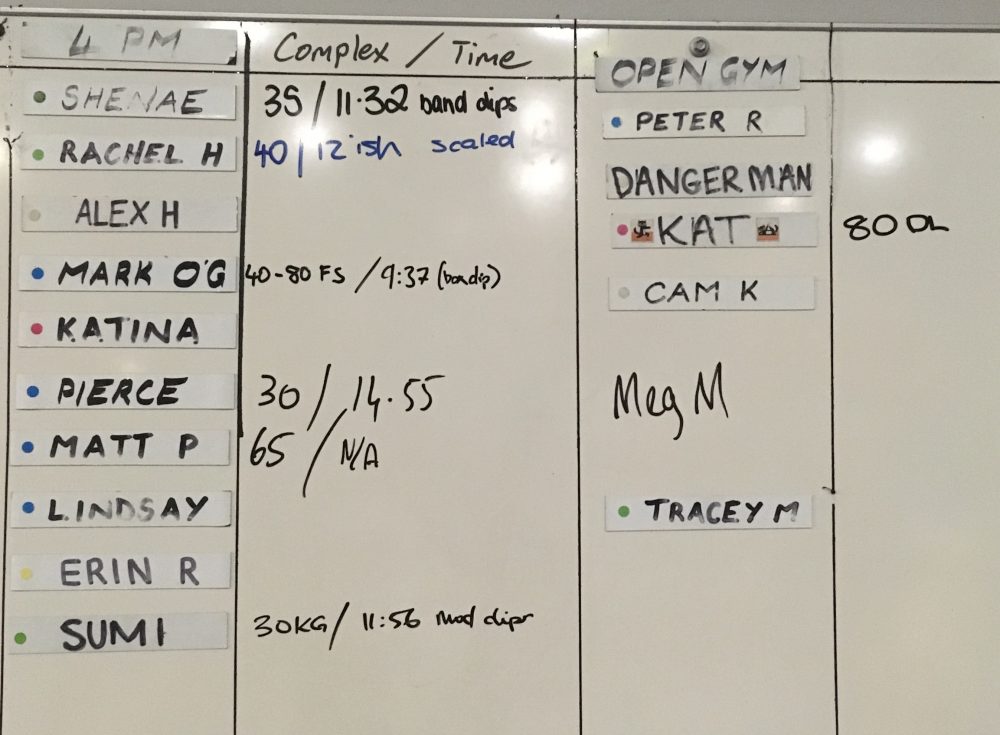 4 PM Complex / Time
SHENAE 35 / 11.32 band dips
RACHEL H 40 / 12 ish scaled
ALEX H
MARK O'G 40-80 FS / 9:37 (ban dip)
KATINA
PIERCE 30 / 14.55
MATT P 65 / N/A
LINDSAY
ERIN R
SUMI 30KG / 11:56 mod dips
OPEN GYM
PETER R
DANGERMAN
KAT 80 DL
CAM K
Meg M
TRACEY M